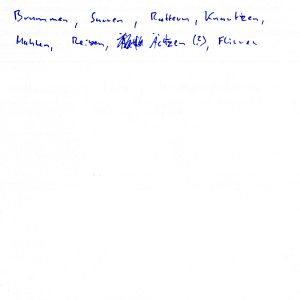 Brummen, Surren, Rattern, Knautzen,
Mahlen, Reisen, Ächzen (?), Flirren